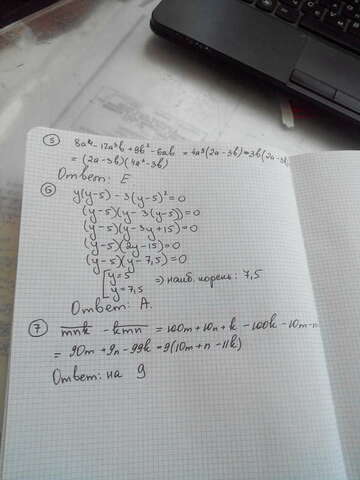 ⑤ 8a⁴ - 12a³b + 9b² - 6ab = 4a³(2a - 3b) - 3b(2a - 3b)
= (2a - 3b)(4a³ - 3b)
Ответ: Е
⑥ y(y-5) - 3(y-5)² = 0
(y-5)(y - 3(y-5)) = 0
(y-5)(y - 3y + 15) = 0
(y-5)(2y - 15) = 0
(y-5)(y - 7,5) = 0
[ y = 5
y = 7,5 => наиб. корень: 7,5
Ответ: А.
⑦ mnk - kmn = 100m + 10n + k - 100k - 10m - n
= 90m + 9n - 99k = 9(10m + n - 11k)
Ответ: на 9